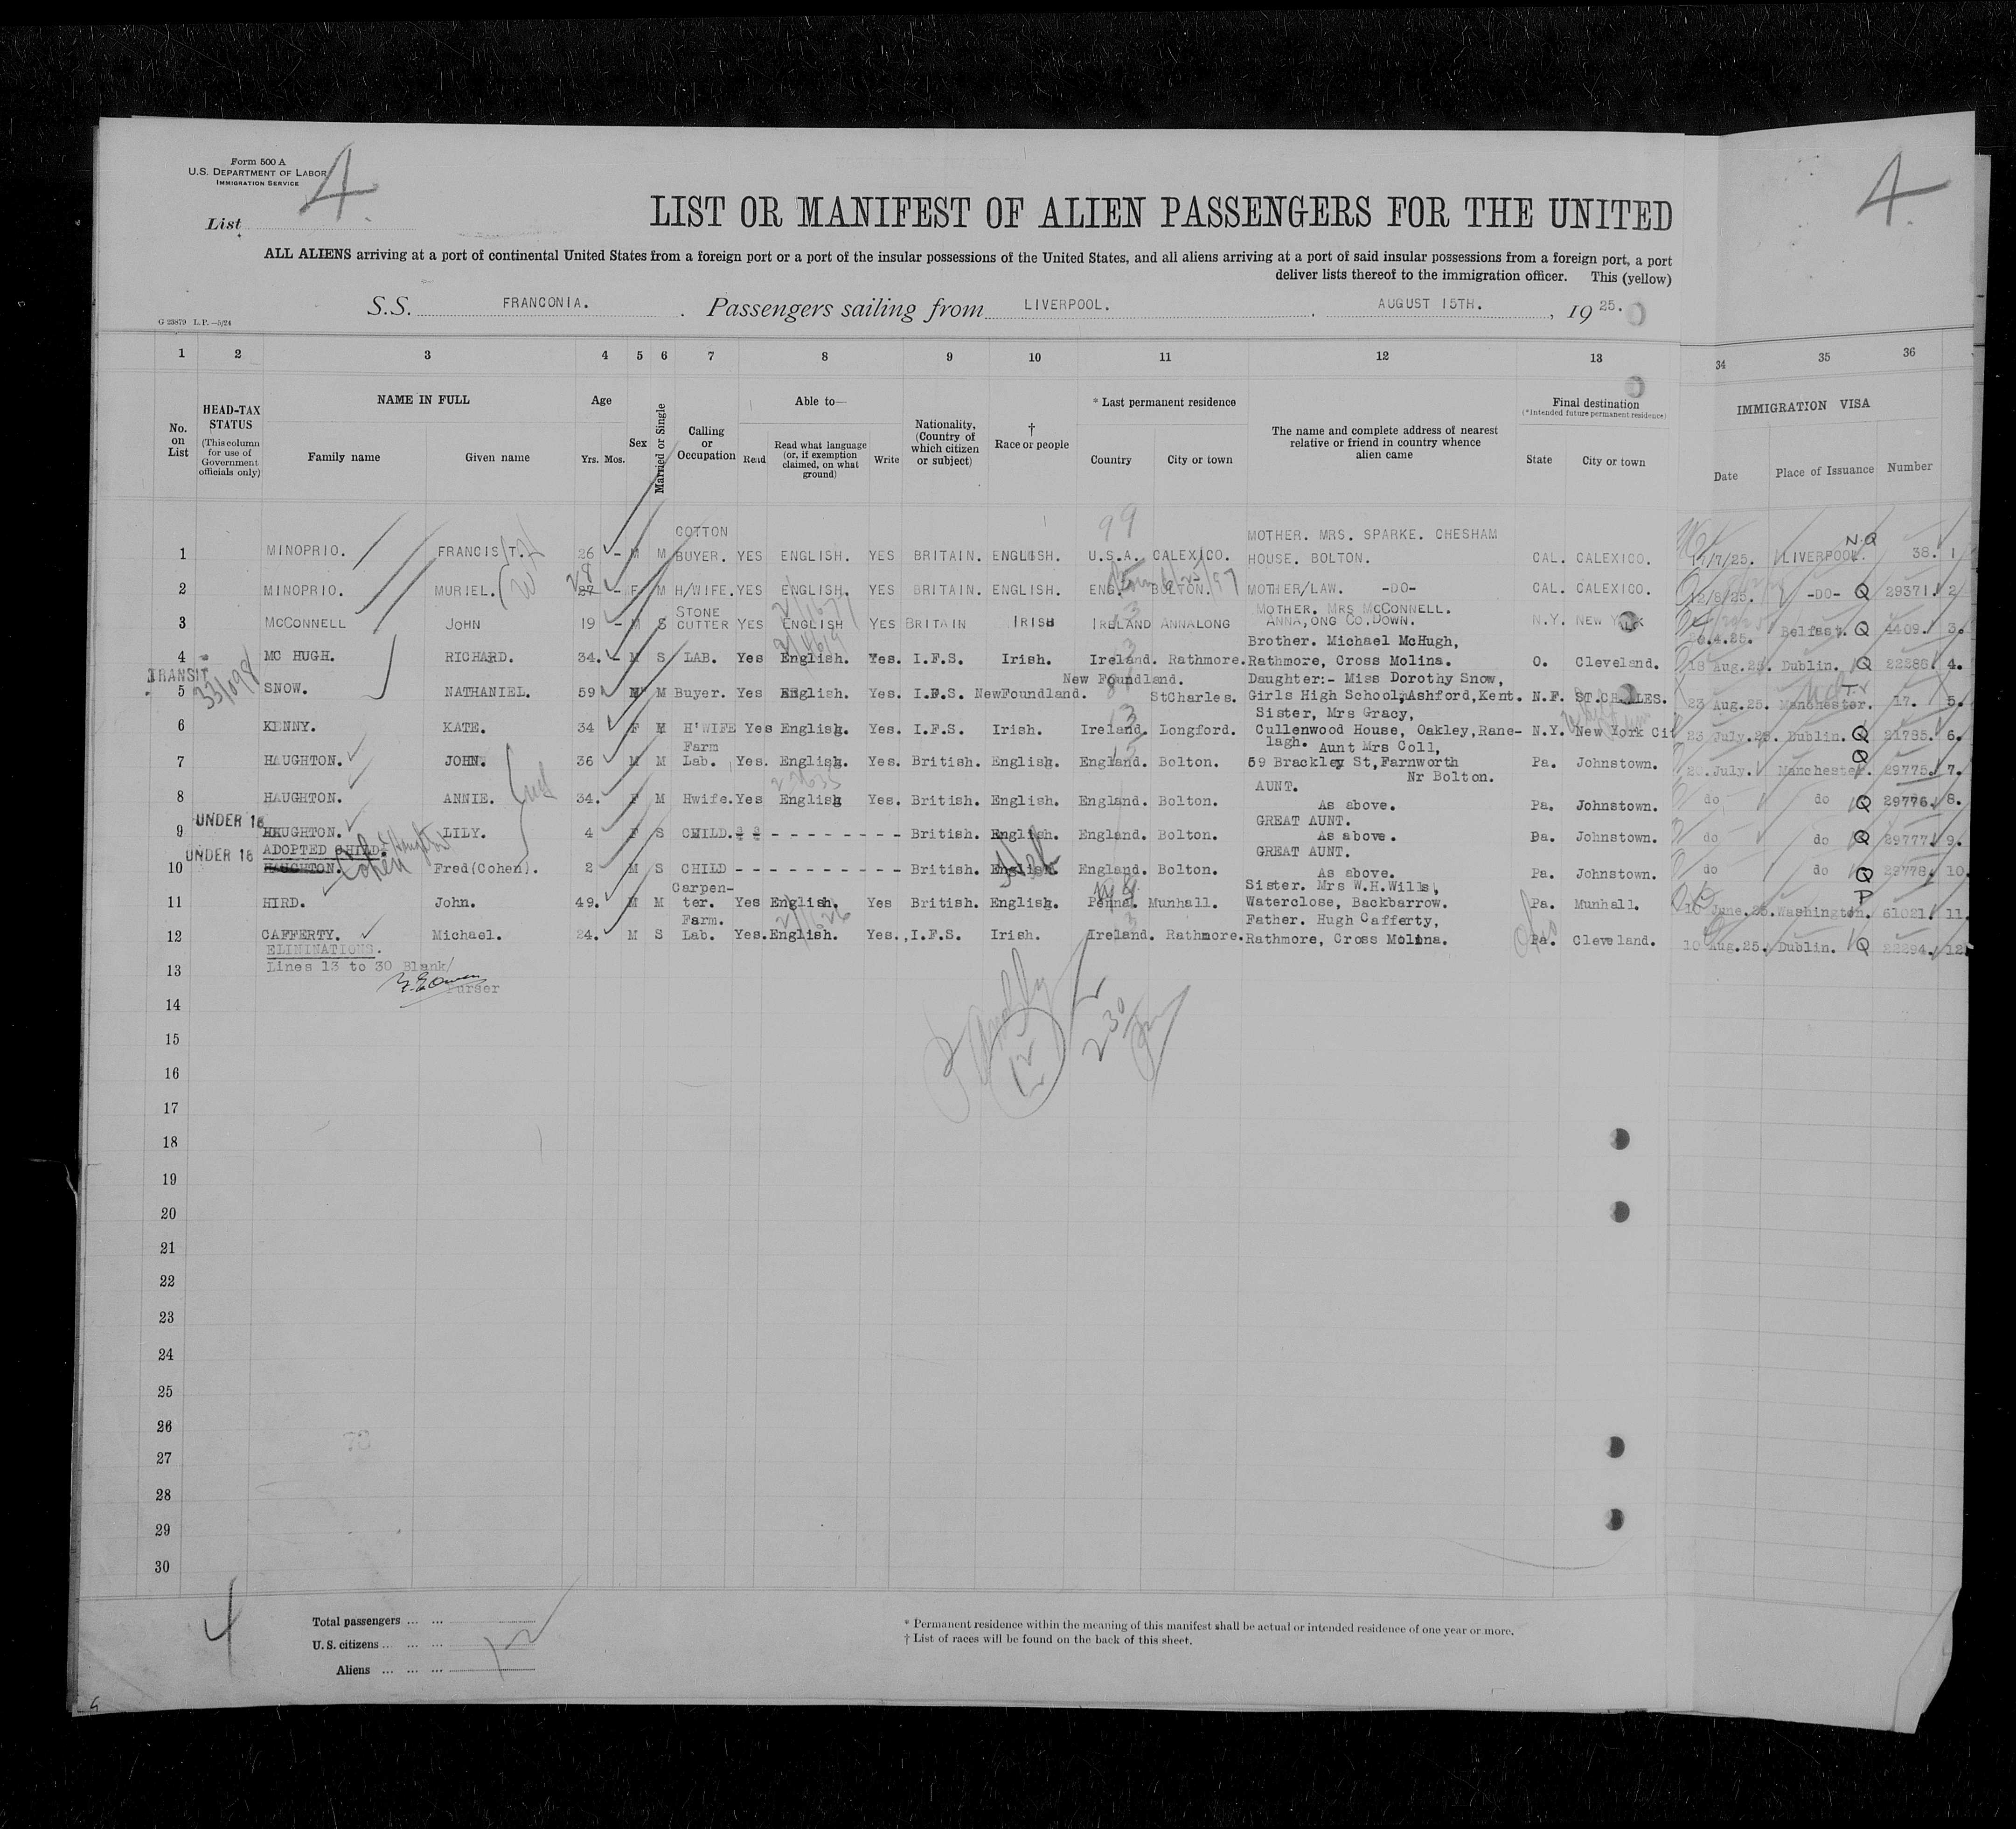 Form 500 A
U.S. DEPARTMENT OF LABOR
IMMIGRATION SERVICE
4
4
List
LIST OR MANIFEST OF ALIEN PASSENGERS FOR THE UNITED
ALL ALIENS arriving at a port of continental United States from a foreign port or a port of the insular possessions of the United States, and all aliens arriving at a port of said insular possessions from a foreign port, a port
deliver lists thereof to the immigration officer. This (yellow)
S.S. FRANCONIA. Passengers sailing from LIVERPOOL. AUGUST 15TH., 1925.
G 23879 L. P.—5/24
1 2 3 4 5 6 7 8 9 10 11 12 13 34 35 36
No. on List
HEAD-TAX STATUS (This column for use of Government officials only)
NAME IN FULL
Family name Given name
Age
Yrs. Mos.
Sex
Married or Single
Calling or Occupation
Able to—
Read
Read what language (or, if exemption claimed, on what ground)
Write
Nationality, (Country of which citizen or subject)
† Race or people
* Last permanent residence
Country City or town
The name and complete address of nearest relative or friend in country whence alien came
Final destination
(*Intended future permanent residence)
State City or town
IMMIGRATION VISA
Date Place of Issuance Number
COTTON 99 MOTHER. MRS. SPARKE. CHESHAM
1 MINOPRIO. FRANCIS T. 26 - M M BUYER. YES ENGLISH. YES BRITAIN. ENGLISH. U.S.A. CALEXICO. HOUSE. BOLTON. CAL. CALEXICO. 17/7/25. LIVERPOOL. N.Q 38. 1
28
2 MINOPRIO. MURIEL. 27 - F M H/WIFE. YES ENGLISH. YES BRITAIN. ENGLISH. ENG. BOLTON. MOTHER/LAW. -DO- CAL. CALEXICO. 12/8/25. -DO- Q 29371. 2
STONE MOTHER. MRS McCONNELL.
3 McCONNELL JOHN 19 - M S CUTTER YES ENGLISH YES BRITAIN IRISH IRELAND ANNALONG ANNA,ONG CO.DOWN. N.Y. NEW YORK 4.25. Belfast. Q 4409. 3.
Brother. Michael McHugh,
4 MC HUGH. RICHARD. 34. - M S LAB. Yes English. Yes. I.F.S. Irish. Ireland. Rathmore. Rathmore, Cross Molina. O. Cleveland. 18 Aug.25. Dublin. Q 22286. 4.
TRANSIT New Foundland. Daughter:- Miss Dorothy Snow,
5 SNOW. NATHANIEL. 59 M M Buyer. Yes English. Yes. I.F.S. NewFoundland. StCharles. Girls High School, Ashford, Kent. N.F. ST.CHARLES. 23 Aug.25. Manchester. 17. 5.
Sister, Mrs Gracy,
6 KENNY. KATE. 34 F M H'WIFE Yes English. Yes. I.F.S. Irish. Ireland. Longford. Cullenwood House, Oakley, Rane- N.Y. New York Cit 23 July.25. Dublin. Q 21785. 6.
Farm lagh. Aunt Mrs Coll,
7 HAUGHTON. JOHN. 36 M M Lab. Yes. English. Yes. British. English. England. Bolton. 59 Brackley St, Farnworth Pa. Johnstown. July. Manchester. Q 29775. 7.
Nr Bolton.
AUNT.
8 HAUGHTON. ANNIE. 34. F M Hwife. Yes English Yes. British. English. England. Bolton. As above. Pa. Johnstown. do do Q 29776. 8.
UNDER 16 GREAT AUNT.
9 HAUGHTON. LILY. 4 F S CHILD. - - - - - - - - - British. English. England. Bolton. As above. Pa. Johnstown. do do Q 29777. 9.
UNDER 16 ADOPTED CHILD. GREAT AUNT.
10 HAUGHTON. Cohen Fred(Cohen). 2 M S CHILD - - - - - - - - - - - British. English. England. Bolton. As above. Pa. Johnstown. do do Q 29778. 10.
Carpen- Sister. Mrs W.H.Wills,
11 HIRD. John. 49. M M ter. Yes English. Yes British. English. Penna. Munhall. Waterclose, Backbarrow. Pa. Munhall. 10 June.25. Washington. P 61021. 11.
Farm. Father. Hugh Cafferty,
12 CAFFERTY. Michael. 24. M S Lab. Yes. English. Yes., I.F.S. Irish. Ireland. Rathmore. Rathmore, Cross Molina. Pa. Cleveland. 10 Aug.25. Dublin. Q 22294. 12.
ELININATIONS.
13 Lines 13 to 30 Blank/
Purser
14
15
16
17
18
19
20
21
22
23
24
25
26
27
28
29
30
12
230
73
4
Total passengers ... ...
U.S. citizens ... ... ...
Aliens ... ... ... 12
* Permanent residence within the meaning of this manifest shall be actual or intended residence of one year or more.
† List of races will be found on the back of this sheet.